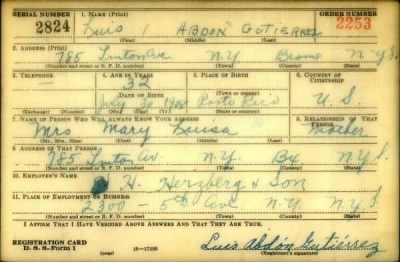 SERIAL NUMBER 1. NAME (Print) ORDER NUMBER
2824 Luis ABDON GUTIERREZ 2253
(First) (Middle) (Last)
2. ADDRESS (Print)
785 Tinton Ave N.Y. Bronx N.Y.S.
(Number and street or R. F. D. number) (Town) (County) (State)
3. TELEPHONE 4. AGE IN YEARS 5. PLACE OF BIRTH 6. COUNTRY OF CITIZENSHIP
— 32
DATE OF BIRTH
July 30 1908 Porto Rico U. S.
(Exchange) (No.) (Mo.) (Day) (Yr.) (State or country)
7. NAME OF PERSON WHO WILL ALWAYS KNOW YOUR ADDRESS 8. RELATIONSHIP OF THAT PERSON
Mrs Mary Luisa Mother
(Mr., Mrs., Miss) (First) (Middle) (Last)
9. ADDRESS OF THAT PERSON
785 Tinton Av. N.Y. Bx N.Y.S.
(Number and street or R. F. D. number) (Town) (County) (State)
10. EMPLOYER'S NAME
H. Herzberg & Son
11. PLACE OF EMPLOYMENT OR BUSINESS
2300 - 5th Ave N.Y. N.Y. N.Y.S
(Number and street or R. F. D. number) (Town) (County) (State)
I AFFIRM THAT I HAVE VERIFIED ABOVE ANSWERS AND THAT THEY ARE TRUE.
REGISTRATION CARD
D. S. S. Form 1 16—17105 Luis Abdón Gutiérrez
(over) (Registrant's signature)